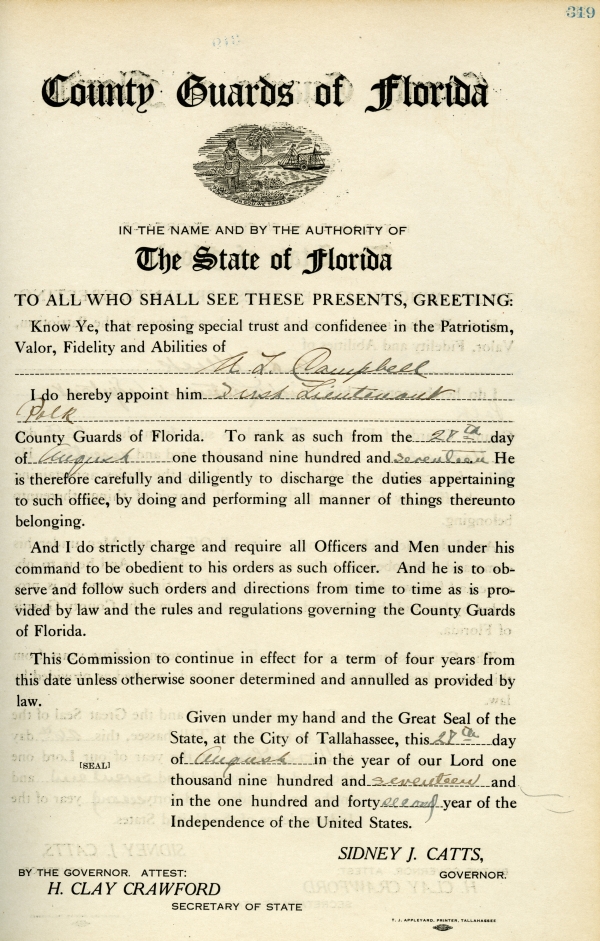 319
County Guards of Florida
IN GOD WE TRUST
IN THE NAME AND BY THE AUTHORITY OF
The State of Florida
TO ALL WHO SHALL SEE THESE PRESENTS, GREETING:
Know Ye, that reposing special trust and confidence in the Patriotism,
Valor, Fidelity and Abilities of
L. Campbell
I do hereby appoint him First Lieutenant
Polk
County Guards of Florida. To rank as such from the 28th day
of August one thousand nine hundred and seventeen He
is therefore carefully and diligently to discharge the duties appertaining
to such office, by doing and performing all manner of things thereunto
belonging.
And I do strictly charge and require all Officers and Men under his
command to be obedient to his orders as such officer. And he is to ob-
serve and follow such orders and directions from time to time as is pro-
vided by law and the rules and regulations governing the County Guards
of Florida.
This Commission to continue in effect for a term of four years from
this date unless otherwise sooner determined and annulled as provided by
law.
Given under my hand and the Great Seal of the
State, at the City of Tallahassee, this 28th day
[SEAL] of August in the year of our Lord one
thousand nine hundred and seventeen and
in the one hundred and forty second year of the
Independence of the United States.
SIDNEY J. CATTS,
BY THE GOVERNOR. ATTEST: GOVERNOR.
H. CLAY CRAWFORD
SECRETARY OF STATE
T. J. APPLEYARD, PRINTER, TALLAHASSEE